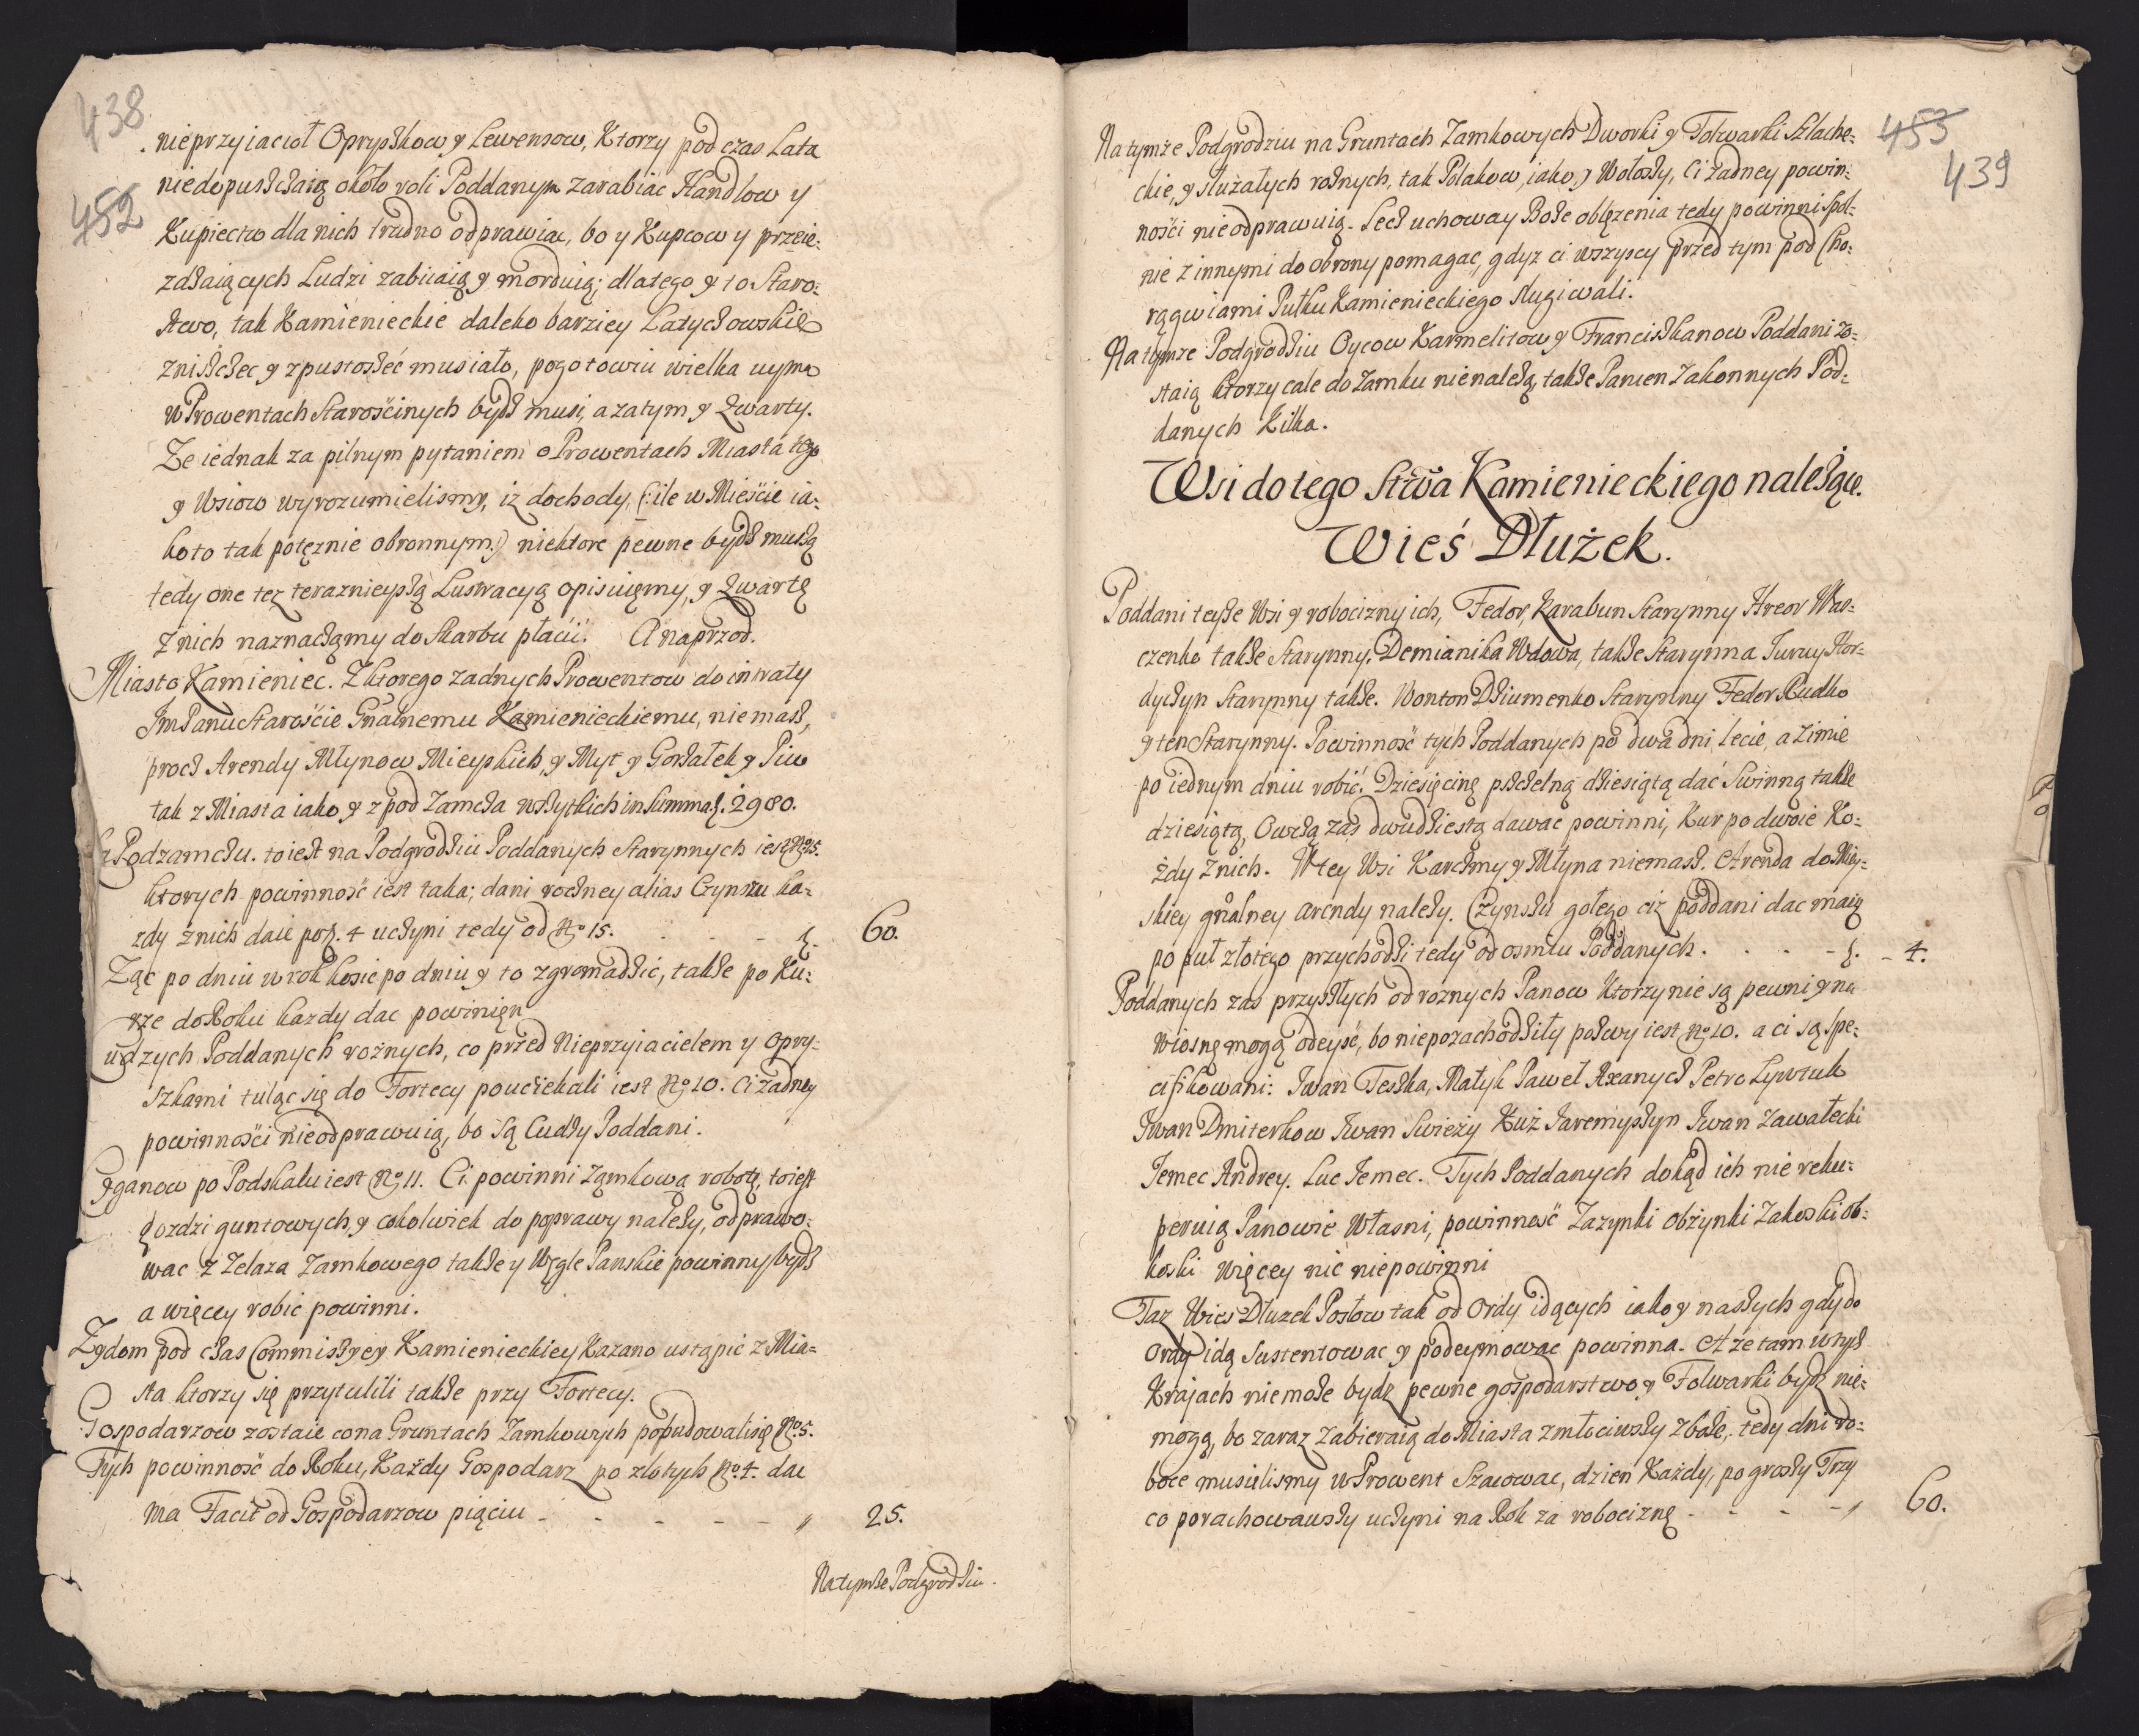 438
452
nieprzyiacioł Opryszkow y Lewensow, Ktorzy pod czas Lata
niedopuszczaią około roli Poddanym zarabiac Handlow y
Kupiectw dla nich trudno odprawiac, bo y Kupcow y przeie-
zdzaiących Ludzi zabiiaią y morduią; dlatego y to Staro-
stwo, tak Kamienieckie daleko barziey Latyczowskie
zniszczec y zpustoszéc musiało, pogotowiu wielka uyma
w Prowentach Starościnych bydz musi, a zatym y Kwarty.
Ze iednak za pilnym pytaniem o Prowentach Miasta tego
y Wsiow wyrozumielismy, iz dochody, (: ile w Mieście ia-
koto tak potęznie obronnym:) niektore pewne bydz muszą
tedy one tez teraznieyszą Lustracyą opisuięmy, y Kwartę
z nich naznaczamy do Skarbu płacić. A naprzod.
Miasto Kamieniec. Z ktorego zadnych Prowentow do intraty
JmPanu Staroście Gnalnemu Kamienieckiemu, niemasz,
procz Arendy Młynow Mieyskich, y Myt y Gorzałek y Piw
tak z Miasta iako y z pod Zamcza wszytkich in Summa f. 2980.
Podzamczu. toiest na Podgrodziu Poddanych Starynnych iest No 15.
ktorych powinność iest taka; dani roczney alias Czynszu ka-
zdy znich daie po f. 4 uczyni tedy od No 15. - - - f. 60.
Ząc po dniu w rok kosic po dniu y to zgromadzic, takze po Ku-
rze do Roku kazdy dac powinięn
Cudzych Poddanych rożnych, co przed Nieprzyiacielem y Opry-
szkami tuląc się do Fortecy pouciekali iest No 10. Ci żadney
powinności nieodprawuią, bo są Cudzy Poddani.
Cyganow po Podskalu iest No 11. Ci powinni Zamkową robotę, toiest
gozdzi guntowych, y cokolwiek do poprawy nalezy, odprawo-
wac z Zelaza Zamkowego takze y Węgle Panskie powinny bydz
a więcey robic powinni.
Zydom pod czas Commissyey Kamienieckiey Kazano ustąpic z Mia-
sta ktorzy się przytulili takze przy Fortecy.
Gospodarzow zostaie co na Gruntach Zamkowych pobudowali się No 5.
Tych powinność do Roku, Każdy Gospodarz po złotych No 4. dac
ma Facit od Gospodarzow pięciu - - - - - „ 25.
Na tymze Podgrodziu.
453
439
Na tymze Podgrodziu na Gruntach Zamkowych Dworki y Folwarki Szlache-
ckie, y służałych roznych, tak Polakow, iako y Wołoszy, Ci zadney powin-
ności nieodprawuią. Lecz uchoway Boze oblęzenia tedy powinni Spol-
nie z innymi do obrony pomagac, gdyz ci wszyscy przed tym pod Cho-
rągwiami Pułku Kamienieckiego sługiwali.
Na tymze Podgrodziu Oycow Karmelitow y Franciszkanow Poddani zo-
staią ktorzy cale do Zamku nienalezą, takze Panien Zakonnych Pod-
danych Kilka.
Wsi do tego Stwa Kamienieckiego należące.
Wieś Dłużek.
Poddani teyze Wsi y robocizny ich, Fedor, Karabun Starynny Hreor Was-
czenko takze Starynny. Demianika Wdowa, takze Starynna Jurny Hor-
dyczyn Starynny takze. Wonton Dziumenko Starynny Fedor Rudko
y ten Starynny. Powinność tych Poddanych po dwa dni lecie, a zimie
po iednym dniu robić. Dziesięcinę pszczelną dziesiątą dać Swinną takze
dziesiątą, Owczą zas dwudziestą dawac powinni, Kur po dwoie Ko-
żdy znich. W tey Wsi Karczmy y Młyna niemasz. Arenda do Miey-
skiey gnalney arendy nalezy. Czynszu gołego ciz poddani dac maią
po puł złotego przychodzi tedy od osmiu Poddanych. - - - f. - 4.
Poddanych zas przyszłych od roznych Panow Ktorzy nie są pewni y na
wiosnę mogą odeysć, bo niepozachodziły pozwy iest No 10. a ci są Spe-
cifikowani: Iwan Teszka, Matyk Paweł Axanycz Petro Lywruk
Iwan Dmiterkow Iwan Swieży Kuz Jaremyszyn Iwan Zawałecki
Jemec Andrey. Luc Jemec. Tych Poddanych dokąd ich nie reku-
peruią Panowie Własni, powinność Zazynki obżynki Zakoski ob-
koski więcey nic niepowinni
Taz Wies Dłuzek Posłow tak od Ordy idących iako y naszych gdy do
Ordy idą Sustentowac y podeymowac powinna. A że tam w tych
Krajach niemoze bydz pewne gospodarstwo, y Folwarki bydz nie-
mogą, bo zaraz zabieraią do Miasta zmłociwszy zboze, tedy dni ro-
bocze musielismy w Prowent Szacowac, dzien Każdy, po groszy Trzy
co porachowawszy uczyni na Rok za robociznę - - - „ 60.